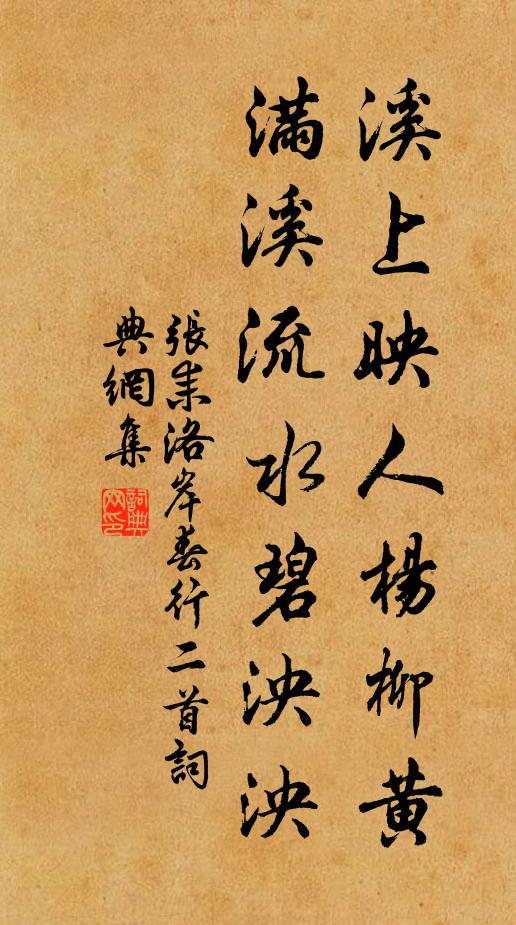 溪上映人楊柳黃
滿溪流水碧泱泱
張耒洛岸春行二首詞
典網集
詞典網印